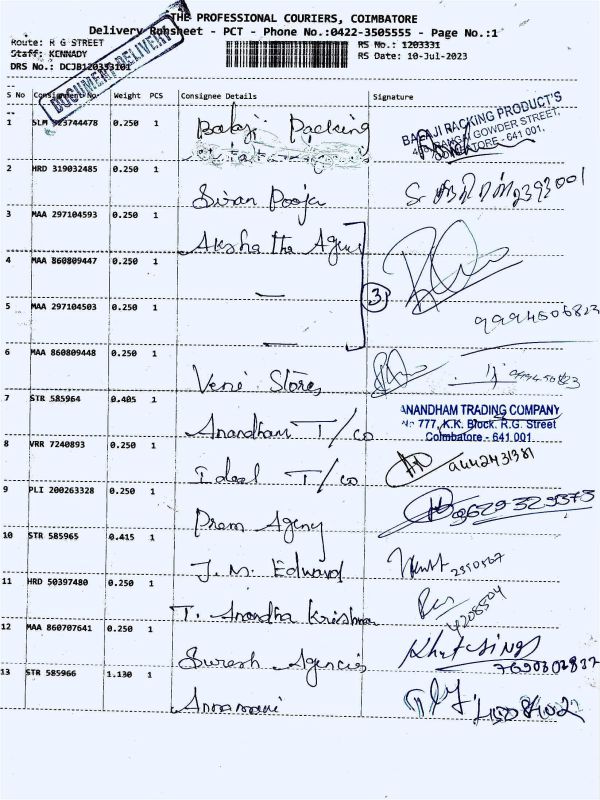 THE PROFESSIONAL COURIERS, COIMBATORE
Delivery Runsheet - PCT - Phone No.:0422-3505555 - Page No.:1
Route: R G STREET
RS No.: 1203331
Staff: KENNADY
RS Date: 10-Jul-2023
DRS No.:
DOCUMENT DELIVERY
S No Consignment No. Weight PCS Consignee Details Signature
1 SLM 0.250 1 Balaji Packing
BALAJI PACKING PRODUCT'S
GOWDER STREET,
COIMBATORE - 641 001.
2 HRD 319032485 0.250 1 Sivan Pooja
3 MAA 297104593 0.250 1 Aksha tha Agency
4 MAA 860809447 0.250 1 —
3
5 MAA 297104503 0.250 1 —
9994506823
6 MAA 860809448 0.250 1 Veni Stores
7 STR 585964 0.405 1 Anandham T/co
ANANDHAM TRADING COMPANY
No: 777, K.K. Block, R.G. Street
Coimbatore - 641 001
8 VRR 7240893 0.250 1 Ideal T/co
9442431381
9 PLI 200263328 0.250 1 Prem Agency
9629329373
10 STR 585965 0.415 1 J. M. Edward
11 HRD 50397480 0.250 1 T. Anandha Krishnan
12 MAA 860707641 0.250 1 Suresh Agencies
13 STR 585966 1.130 1 Annamani